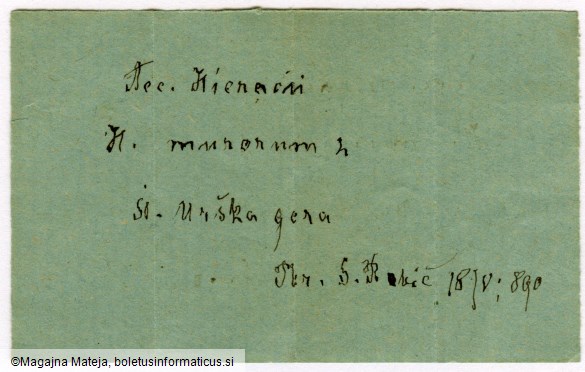 Aec. Hieracii
H. murorum L
Št. Urška gora
S. 18/V; 890
©Magajna Mateja, boletusinformaticus.si